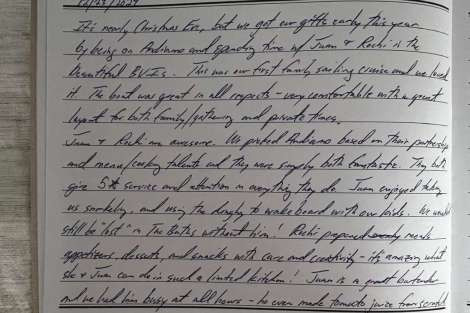 12/23/2024
It's nearly Christmas Eve, but we got our gifts early this year
by being on Andiamo and spending time w/ Juan & Rochi in the
beautiful BVIs. This was our first family sailing cruise and we loved
it. The boat was great in all respects - very comfortable with a great
layout for both family/gathering and private times.
Juan & Rochi are awesome. We picked Andiamo based on their partnership
and menu/cooking talents and they were simply both fantastic. They both
give 5★ service and attention in everything they do. Juan enjoyed taking
us snorkeling, and using the dinghy to wakeboard with our kids. We would
still be "lost" in The Baths without him! Rochi prepared meals
appetizers, desserts, and snacks with care and creativity - it's amazing what
she & Juan can do in such a limited kitchen! Juan is a great bartender
and we had him busy at all hours - he even made tomato juice from scratch